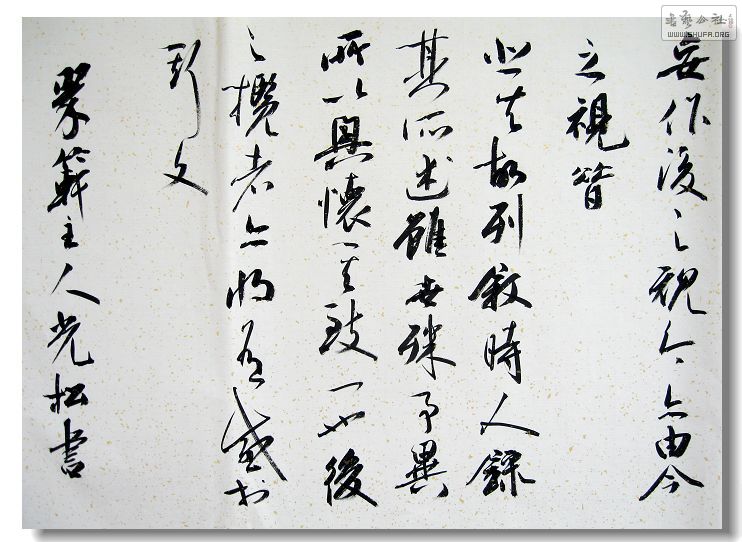 書藝公社
WWW.SHUFA.ORG
妄作後之視今亦由今
之視昔
悲夫故列敘時人錄
其所述雖世殊事異
所以興懷其致一也後
之攬者亦將有感於
斯文
主人光松書